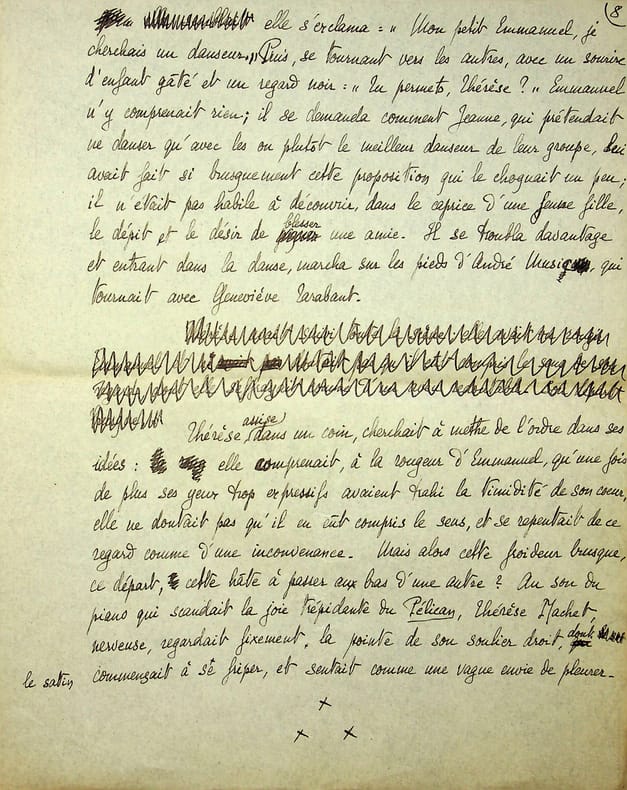 8
elle s'exclama : " Mon petit Emmanuel, je
cherchais un danseur. " Puis, se tournant vers les autres, avec un sourire
d'enfant gâté et un regard noir : " Tu permets, Thérèse ? " Emmanuel
n'y comprenait rien ; il se demanda comment Jeanne, qui prétendait
ne danser qu'avec les ou plutôt le meilleur danseur de leur groupe, lui
avait fait si brusquement cette proposition qui le choquait un peu ;
il n'était pas habile à découvrir, dans le caprice d'une jeune fille,
le dépit et le désir de blesser une amie. Il se troubla davantage
et entrant dans la danse, marcha sur les pieds d'André, qui
tournait avec Geneviève Tarabant.
Thérèse, assise dans un coin, cherchait à mettre de l'ordre dans ses
idées : elle comprenait, à la rougeur d'Emmanuel, qu'une fois
de plus ses yeux trop expressifs avaient trahi la timidité de son coeur,
elle ne doutait pas qu'il en eût compris le sens, et se repentait de ce
regard comme d'une inconvenance. Mais alors cette froideur brusque,
ce départ, cette hâte à passer aux bras d'une autre ? Au son du
piano qui scandait la joie trépidante du Pélican, Thérèse Machet,
nerveuse, regardait fixement, la pointe de son soulier droit, dont
le satin commençait à se friper, et sentait comme une vague envie de pleurer.
+
+ +